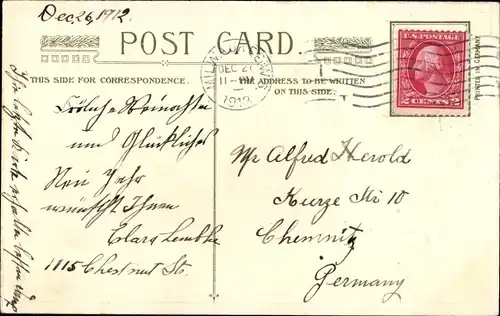 Dec 26, 1912.
POST CARD.
THIS SIDE FOR CORRESPONDENCE.
THE ADDRESS TO BE WRITTEN
ON THIS SIDE.
MILWAUKEE, WIS.
DEC 27
1912
U.S. POSTAGE
2 CENTS 2
PRINTED IN GERMANY
Frölich Weinachten
und Glückliches
Neu Jahr
wünscht Ihnen
Clara Lembke
1115 Chestnut Str.
Mr Alfred Herold
Kurze Str 10
Chemnitz
Germany
Ihre Karte erhalten